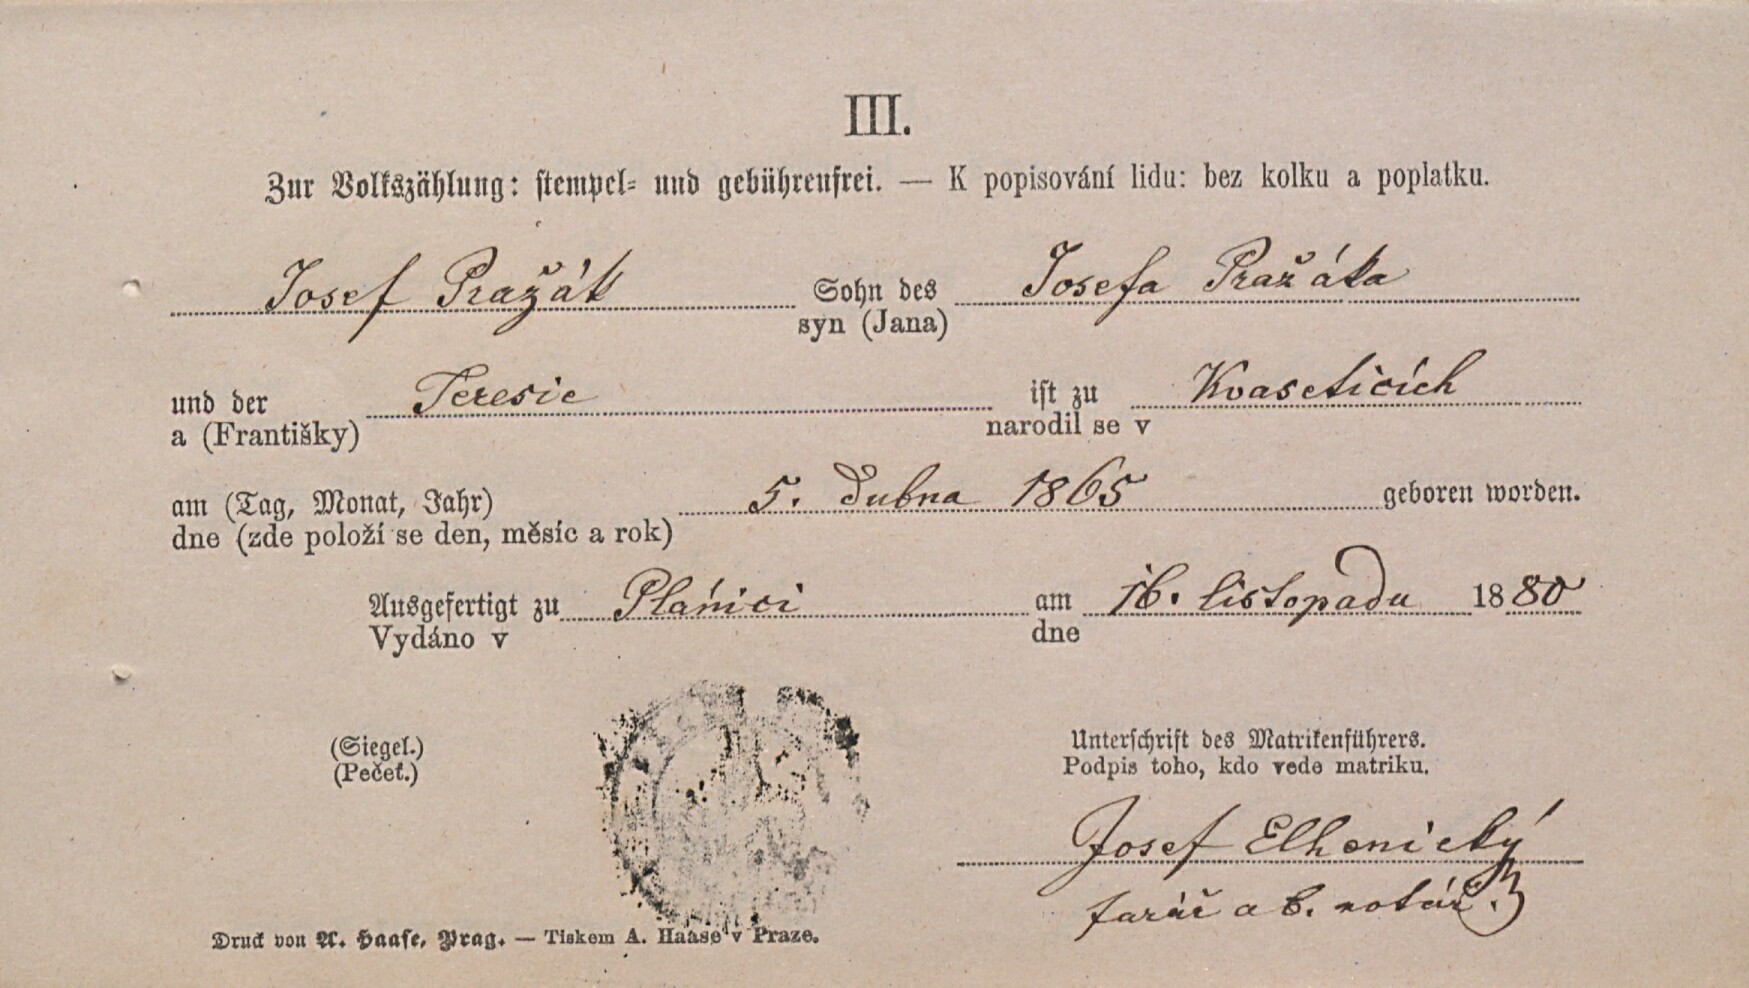 III.
Zur Volkszählung: stempel- und gebührenfrei. — K popisování lidu: bez kolku a poplatku.
Josef Pražák Sohn des Josefa Pražáka
syn (Jana)
und der Teresie ist zu Kvaseticích
a (Františky) narodil se v
am (Tag, Monat, Jahr) 5. Dubna 1865 geboren worden.
dne (zde položí se den, měsíc a rok)
Ausgefertigt zu Plánici am 16. listopadu 1880
Vydáno v dne
(Siegel.) Unterschrift des Matrikenführers.
(Pečeť.) Podpis toho, kdo vede matriku.
Josef Elhenický
farář a b. notář.
Druck von A. Haase, Prag. — Tiskem A. Haase v Praze.